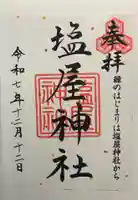 奉拝
縁のはじまりは塩屋神社から
塩屋神社
令和七年十二月十二日